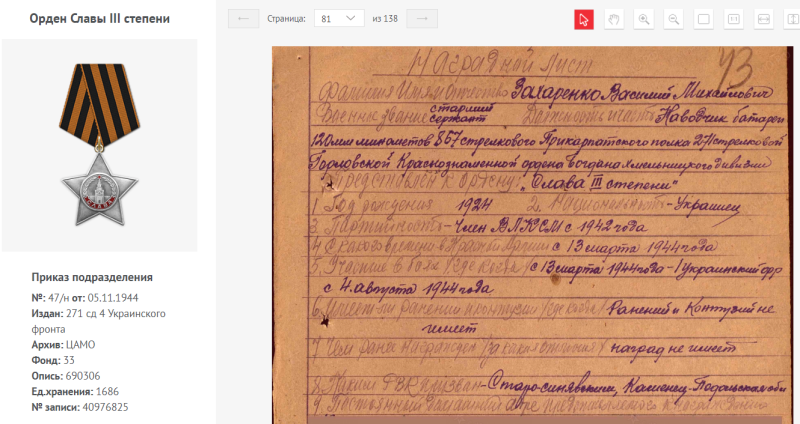 Орден Славы III степени
Приказ подразделения
№: 47/н от: 05.11.1944
Издан: 271 сд 4 Украинского
фронта
Архив: ЦАМО
Фонд: 33
Опись: 690306
Ед.хранения: 1686
№ записи: 40976825
Страница: 81 из 138
1:1
43
Наградной лист
Фамилия Имя и Отчество Захаренко Василий Михайлович
Военное звание старший сержант Должность и часть Наводчик батареи
120мм минометов 867 стрелкового Прикарпатского полка 271 стрелковой
Горловской Краснознаменной ордена Богдана Хмельницкого дивизии
Представлен к ордену: „Слава III степени"
1. Год рождения 1924 2. Национальность - Украинец
3. Партийность - Член ВЛКСМ с 1942 года
4. С какого времени в Красной Армии с 13 марта 1944 года
5. Участие в боях (где когда) с 13 марта 1944 года - 1 Украинский фр
с 4. августа 1944 года
6. Имеет ли ранения и контузии (где когда) Ранений и Контузий не
имеет
7. Чем ранее награжден (за какие отличия) наград не имеет
8. Каким РВК призван - Старо-синявским, Каменец-Подольская обл
9. Постоянный домашний адрес представляемого к награждению